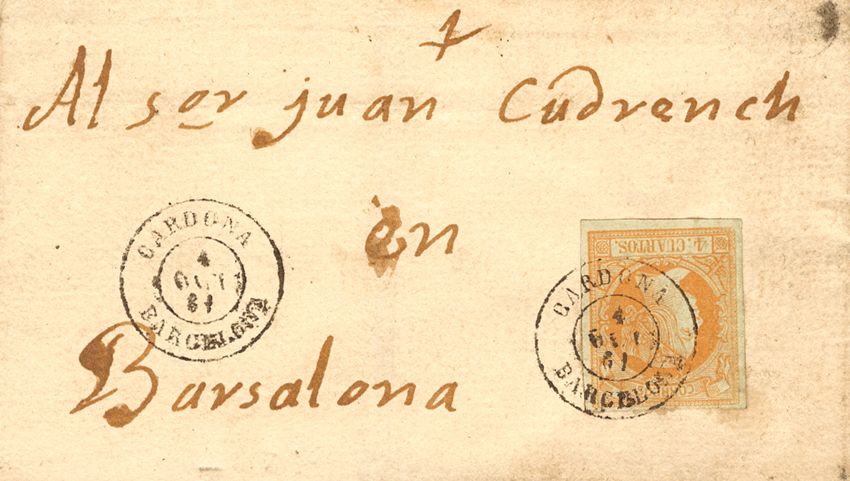 +
Al sor juan Cudrench
en
Barsalona
CARDONA
4
61
BARCELONA
4 CUARTOS.
CARDONA
4
61
BARCELONA